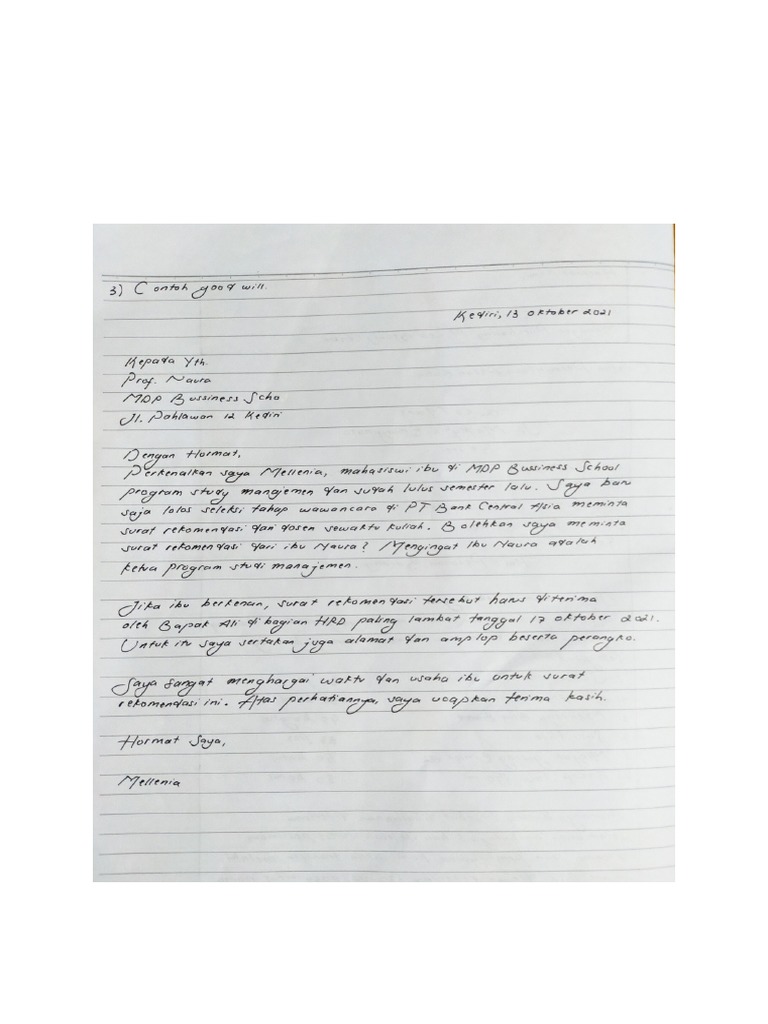 3) Contoh good will.
Kediri, 13 oktober 2021
Kepada Yth.
Prof. Naura
MDP Bussiness Scho
Jl. Pahlawan 12 Kediri
Dengan Hormat,
Perkenalkan saya Mellenia, mahasiswi ibu di MDP Bussiness School
program study manajemen dan sudah lulus semester lalu. Saya baru
saja lolos seleksi tahap wawancara di PT Bank Central Asia meminta
surat rekomendasi dari dosen sewaktu kuliah. Bolehkan saya meminta
surat rekomendasi dari ibu Naura? Mengingat Ibu Naura adalah
ketua program studi manajemen.
Jika ibu berkenan, surat rekomendasi tersebut harus diterima
oleh Bapak Ali di bagian HRD paling lambat tanggal 17 oktober 2021.
Untuk itu saya sertakan juga alamat dan amplop beserta perangko.
Saya Sangat menghargai waktu dan usaha ibu untuk surat
rekomendasi ini. Atas perhatiannya, saya ucapkan terima kasih.
Hormat Saya,
Mellenia